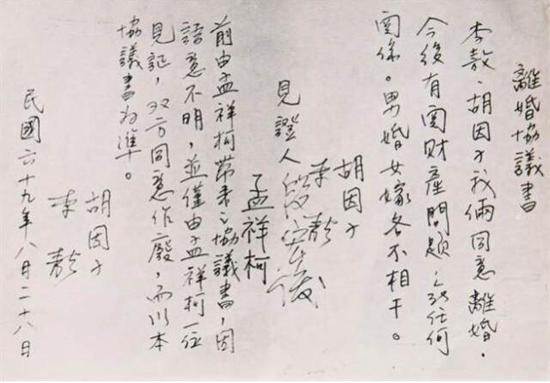 離婚協議書
李敖、胡因子我倆同意離婚,
今後有関財産問題,任何
関係。男婚女嫁各不相干。
胡因子
李敖
見證人 段宏俊
孟祥柯
前由孟祥柯帶来之協議書,因
語意不明,並僅由孟祥柯一位
見証,双方同意作廢,而以本
協議書為準。
胡因子
李敖
民國六十九年八月二十八日